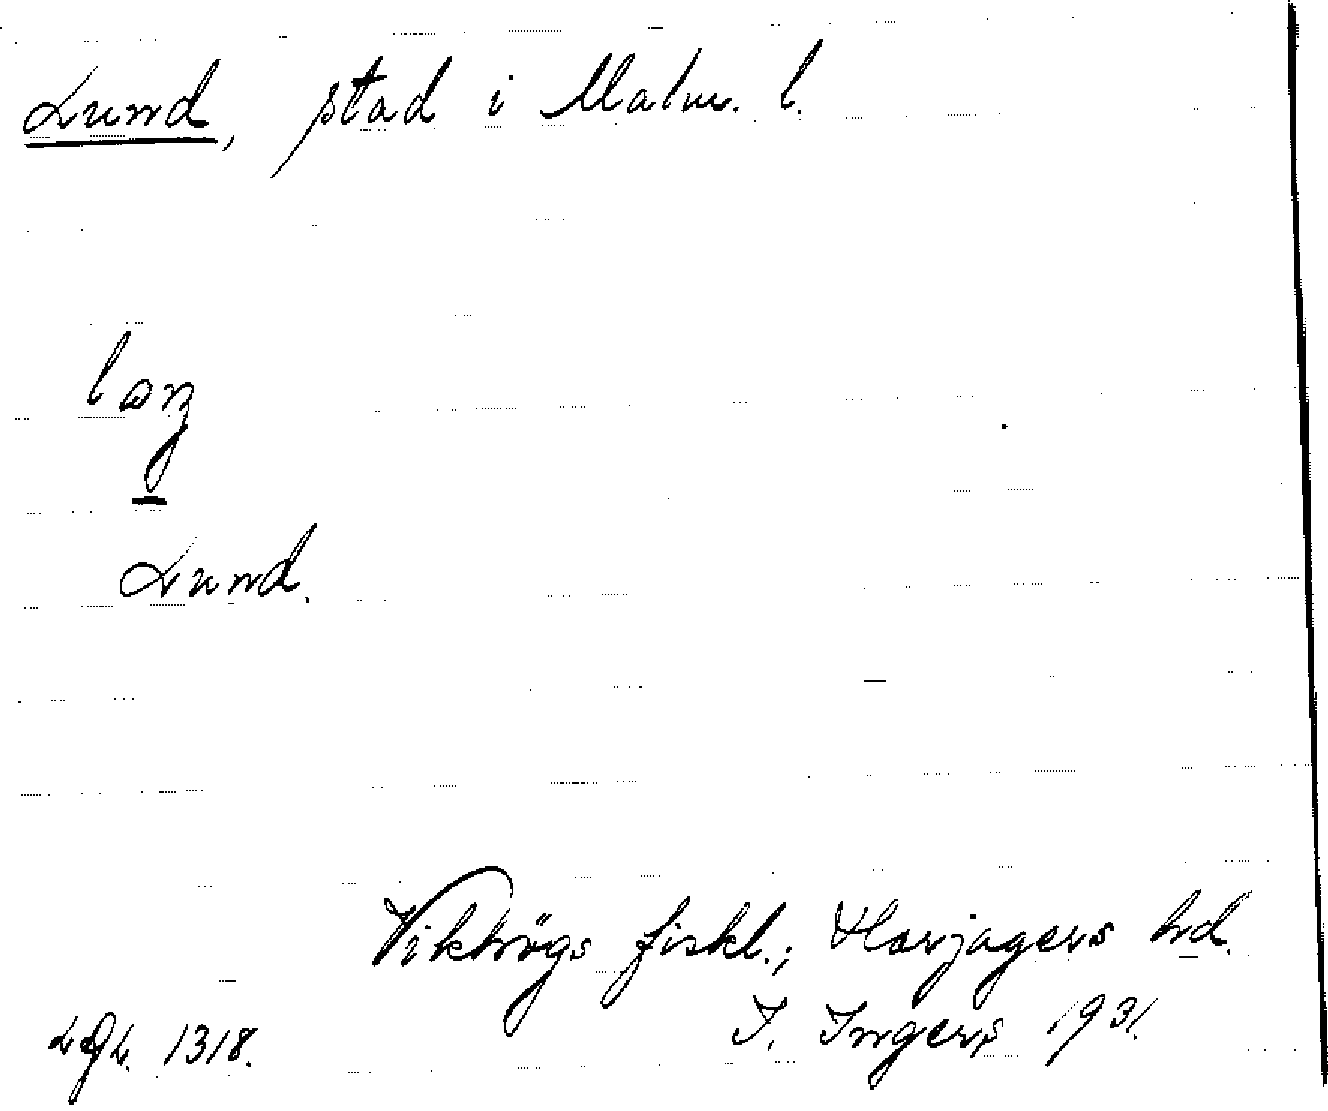 Lund, stad i Malm. l.
Lund.
Vikhögs fiskl.; Harjagers hd.
I. Ingers 1931.
1318.